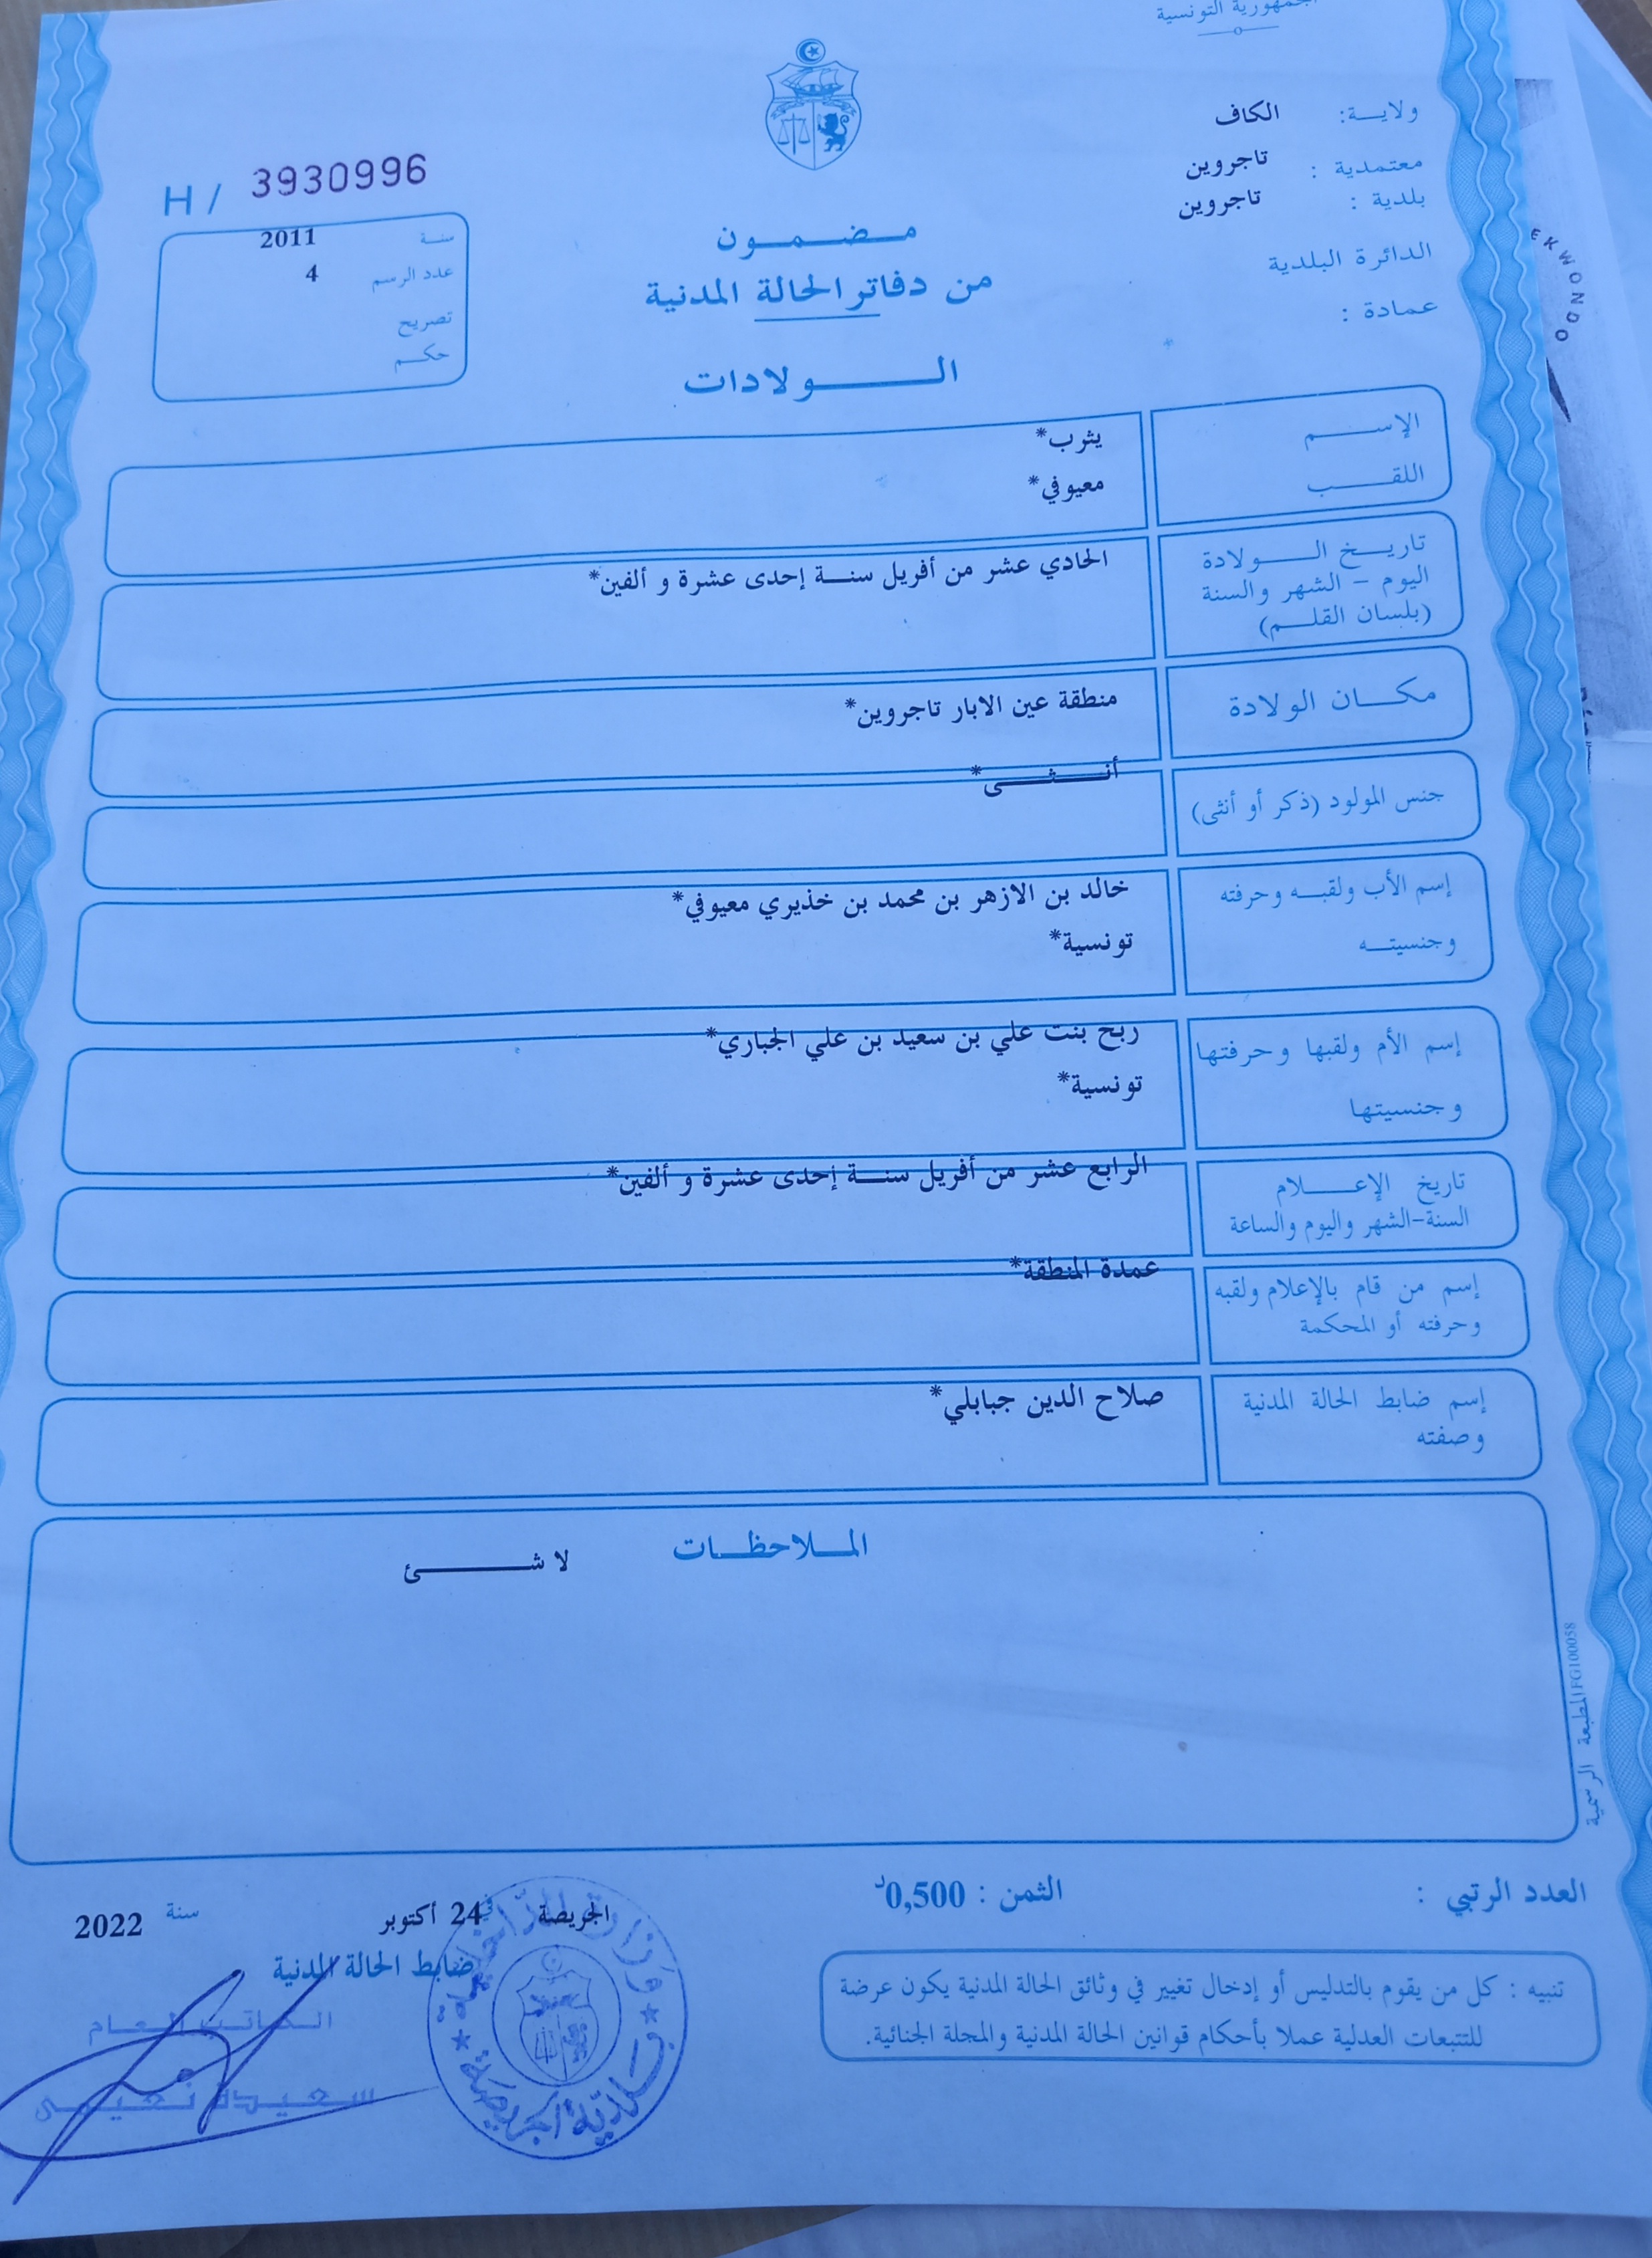 الجمهورية التونسية
ولايـــة: الكاف
معتمدية : تاجروين
بلدية : تاجروين
الدائرة البلدية
عمادة :
H / 3930996
سنة 2011
عدد الرسم 4
تصريح
حكم
مـضـمـون
من دفاتر الحالة المدنية
الـولادات
الإسـم يثرب*
اللقـب معيوفي*
تاريـخ الـولادة
اليوم - الشهر والسنة
(بلسان القلـم)
الحادي عشر من أفريل سنـة إحدى عشرة و ألفين*
مكـان الولادة
منطقة عين الابار تاجروين*
جنس المولود (ذكر أو أنثى)
أنـثـى*
إسم الأب ولقبـه وحرفته
وجنسيتـه
خالد بن الازهر بن محمد بن خذيري معيوفي*
تونسية*
إسم الأم ولقبها وحرفتها
وجنسيتها
ربح بنت علي بن سعيد بن علي الجباري*
تونسية*
تاريخ الإعـلام
السنة-الشهر واليوم والساعة
الرابع عشر من أفريل سنـة إحدى عشرة و ألفين*
إسم من قام بالإعلام ولقبه
وحرفته أو المحكمة
عمدة المنطقة*
إسم ضابط الحالة المدنية
وصفته
صلاح الدين جبابلي*
المـلاحظـات
لا شـئ
المطبعة الرسمية FG100058
العدد الرتبي :
الثمن : 0,500د
تنبيه : كل من يقوم بالتدليس أو إدخال تغيير في وثائق الحالة المدنية يكون عرضة
للتتبعات العدلية عملا بأحكام قوانين الحالة المدنية والمجلة الجنائية.
الجريصة في 24 أكتوبر سنة 2022
ضابط الحالة المدنية
الكاتب العام
سعيدة نعيمي
وزارة الداخلية
بلدية الجريصة
EKWONDO